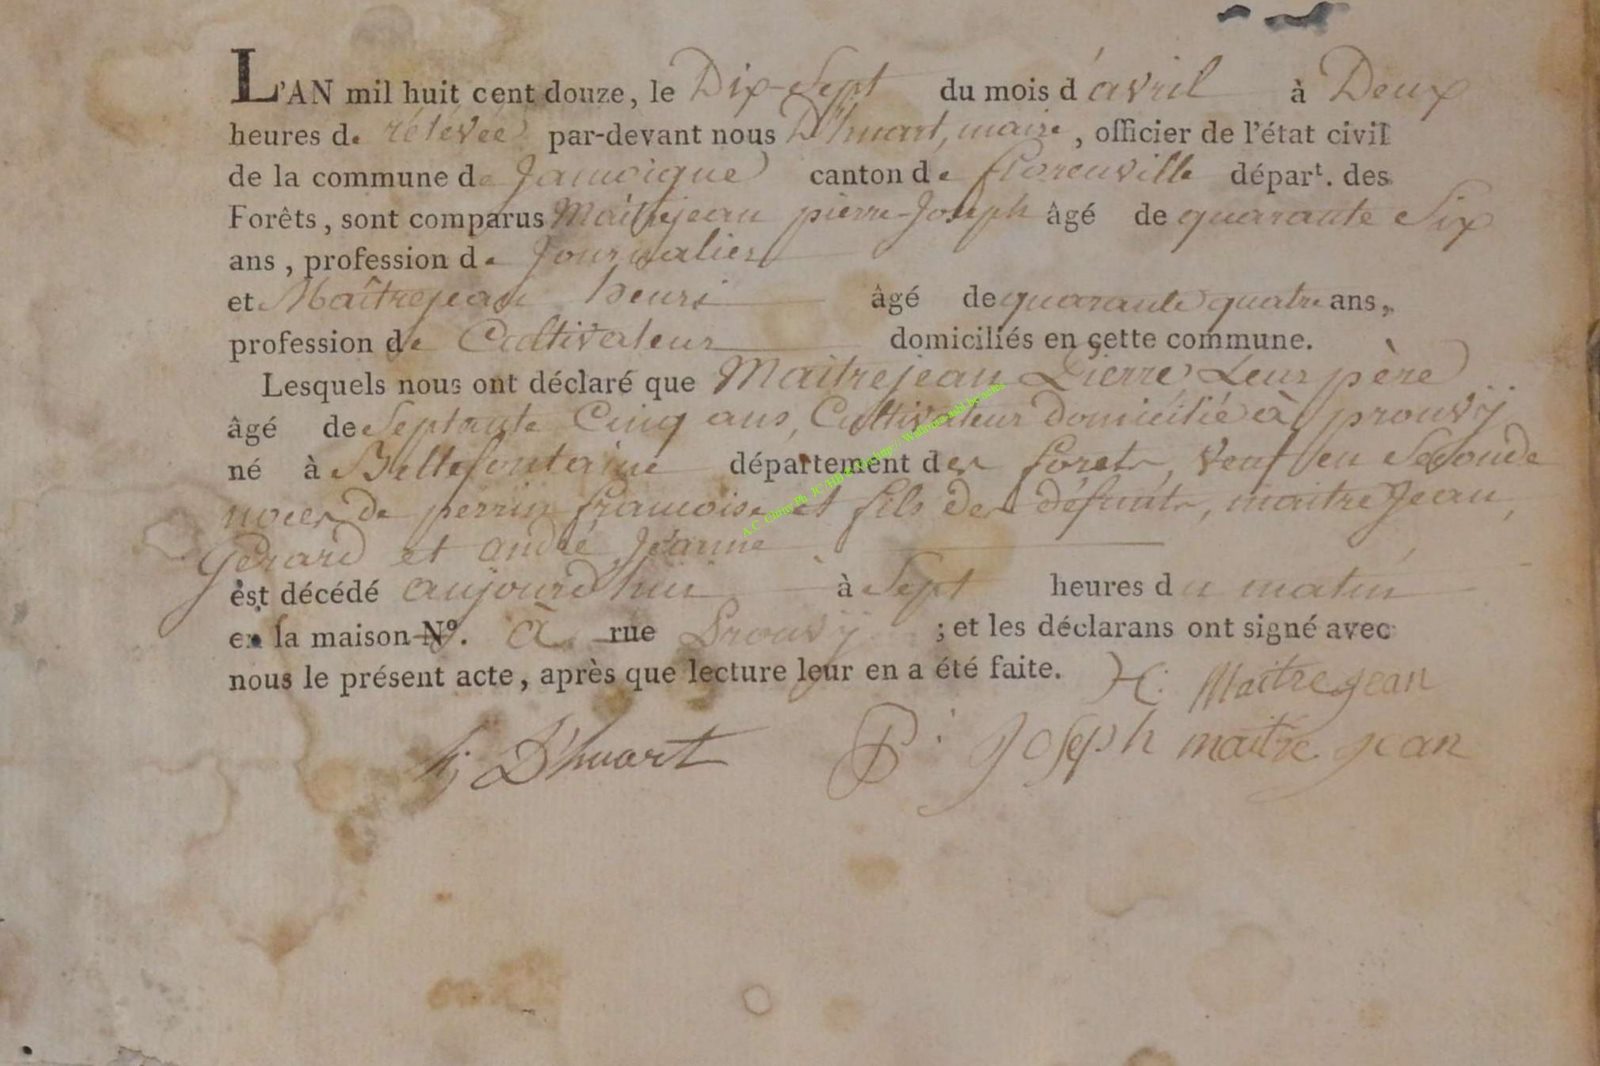 L'AN mil huit cent douze, le Dix-Sept du mois d'avril à Deux
heures de rélévée par-devant nous D'huart, maire, officier de l'état civil
de la commune de Jamoigne canton de florenville départ. des
Forêts, sont comparus Maitrejean pierre-Joseph âgé de quarante Six
ans, profession de Journalier
et Maîtrejean henri âgé de quarante quatre ans,
profession de Cultivateur domiciliés en cette commune.
Lesquels nous ont déclaré que Maitrejean Pierre Leur père
âgé de Septante Cinq ans, Cultivateur domicilié à prouvÿ
né à Bellefontaine département des forets, veuf en Seconde
noces de perrin francoise et fils des défunts, maitre Jean,
Gérard et andré Jeanne
est décédé aujourd'hui à Sept heures du matin
en sa maison N°. à rue Prouvÿ ; et les déclarans ont signé avec
nous le présent acte, après que lecture leur en a été faite. H: Maitrejean
D'huart P: Joseph maitre jean